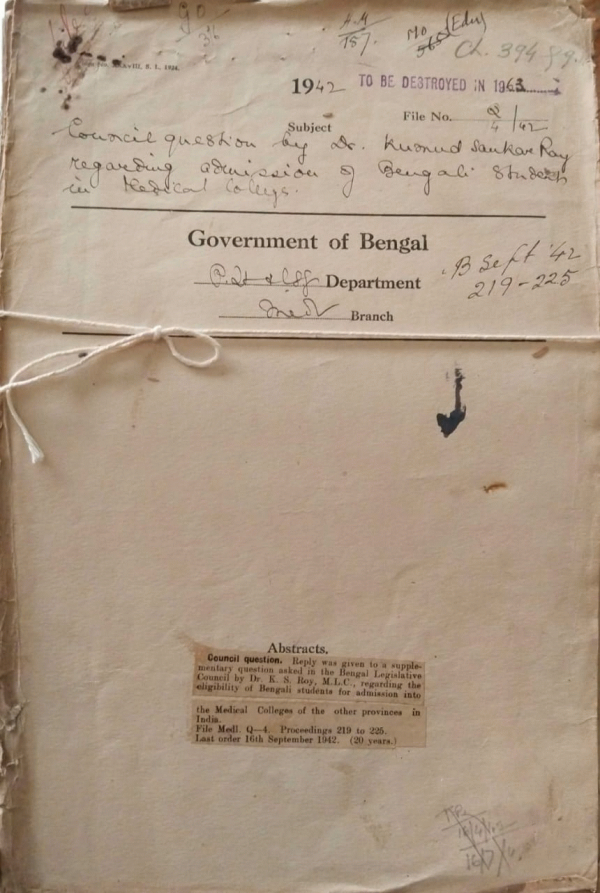 A.M
157.
MO (Edn)
Ch. 394
1942 TO BE DESTROYED IN 1963
Subject
File No. Q/4 /42
Council question by Dr. Kumud Sankar Ray
regarding admission of Bengali Students
in Medical College.
Government of Bengal
Department
B Sept '42
219-225
Branch
Abstracts.
Council question. Reply was given to a supple-
mentary question asked in the Bengal Legislative
Council by Dr. K. S. Roy, M.L.C., regarding the
eligibility of Bengali students for admission into
the Medical Colleges of the other provinces in
India.
File Medl. Q—4. Proceedings 219 to 225.
Last order 16th September 1942. (20 years.)